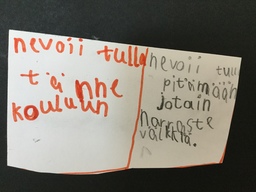 nevoii tulla
tänne
kouluun
nevoii tuu
pitämään
jotain
harraste
välkkä.